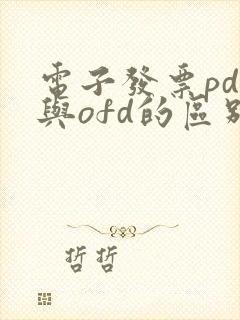 電子發票pd
與ofd的區別
哲哲